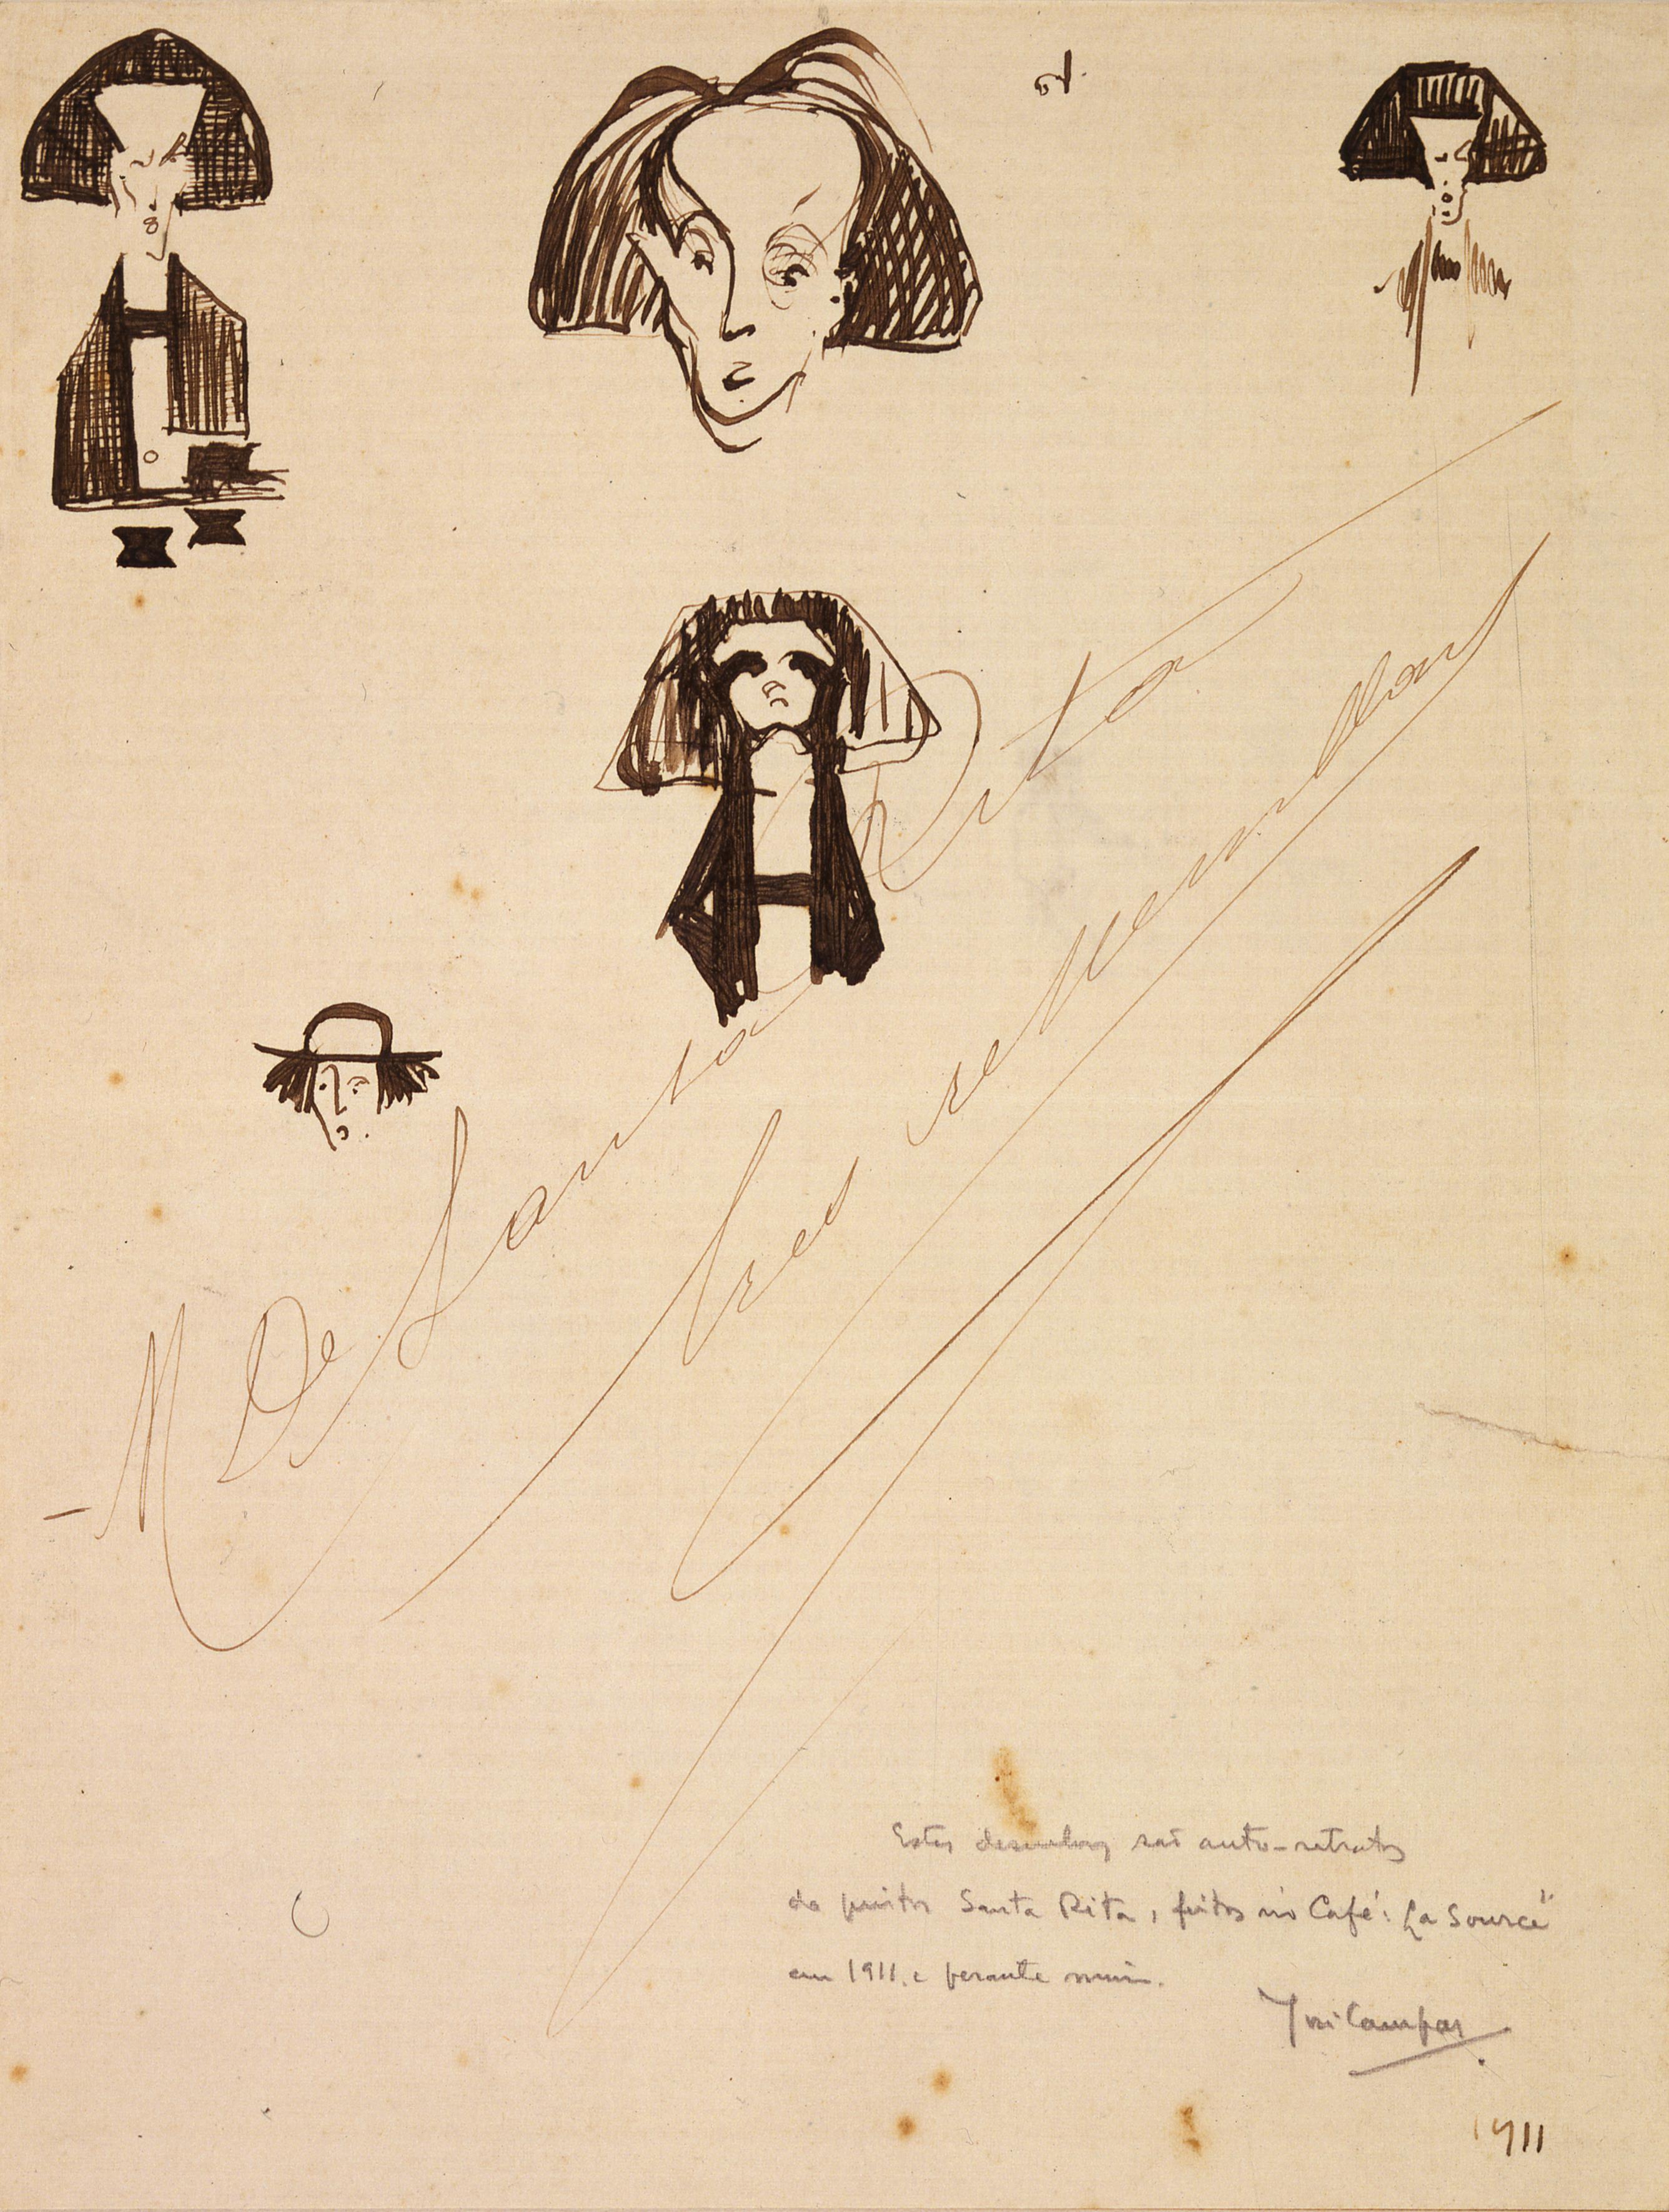 M De Santa Rita
tres ressemblant
Estes desenhos são auto-retratos
do pintor Santa Rita, feitos no Café: "La Source"
em 1911. e perante mim.
José Campas
1911